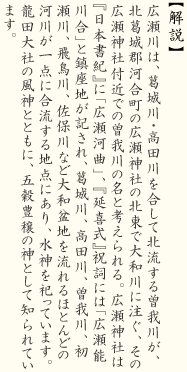 【解説】
広瀬川は、葛城川・高田川を合して北流する曽我川が、
北葛城郡河合町の広瀬神社の北東で大和川に注ぐ、その
広瀬神社付近での曽我川の名と考えられる。広瀬神社は
『日本書紀』に「広瀬河曲」、『延喜式』祝詞には「広瀬能
川合」と鎮座地が記され、葛城川、高田川、曽我川、初
瀬川、飛鳥川、佐保川など大和盆地を流れるほとんどの
河川が一点に合流する地点にあり、水神を祀っています。
龍田大社の風神とともに、五穀豊穣の神として知られてい
ます。